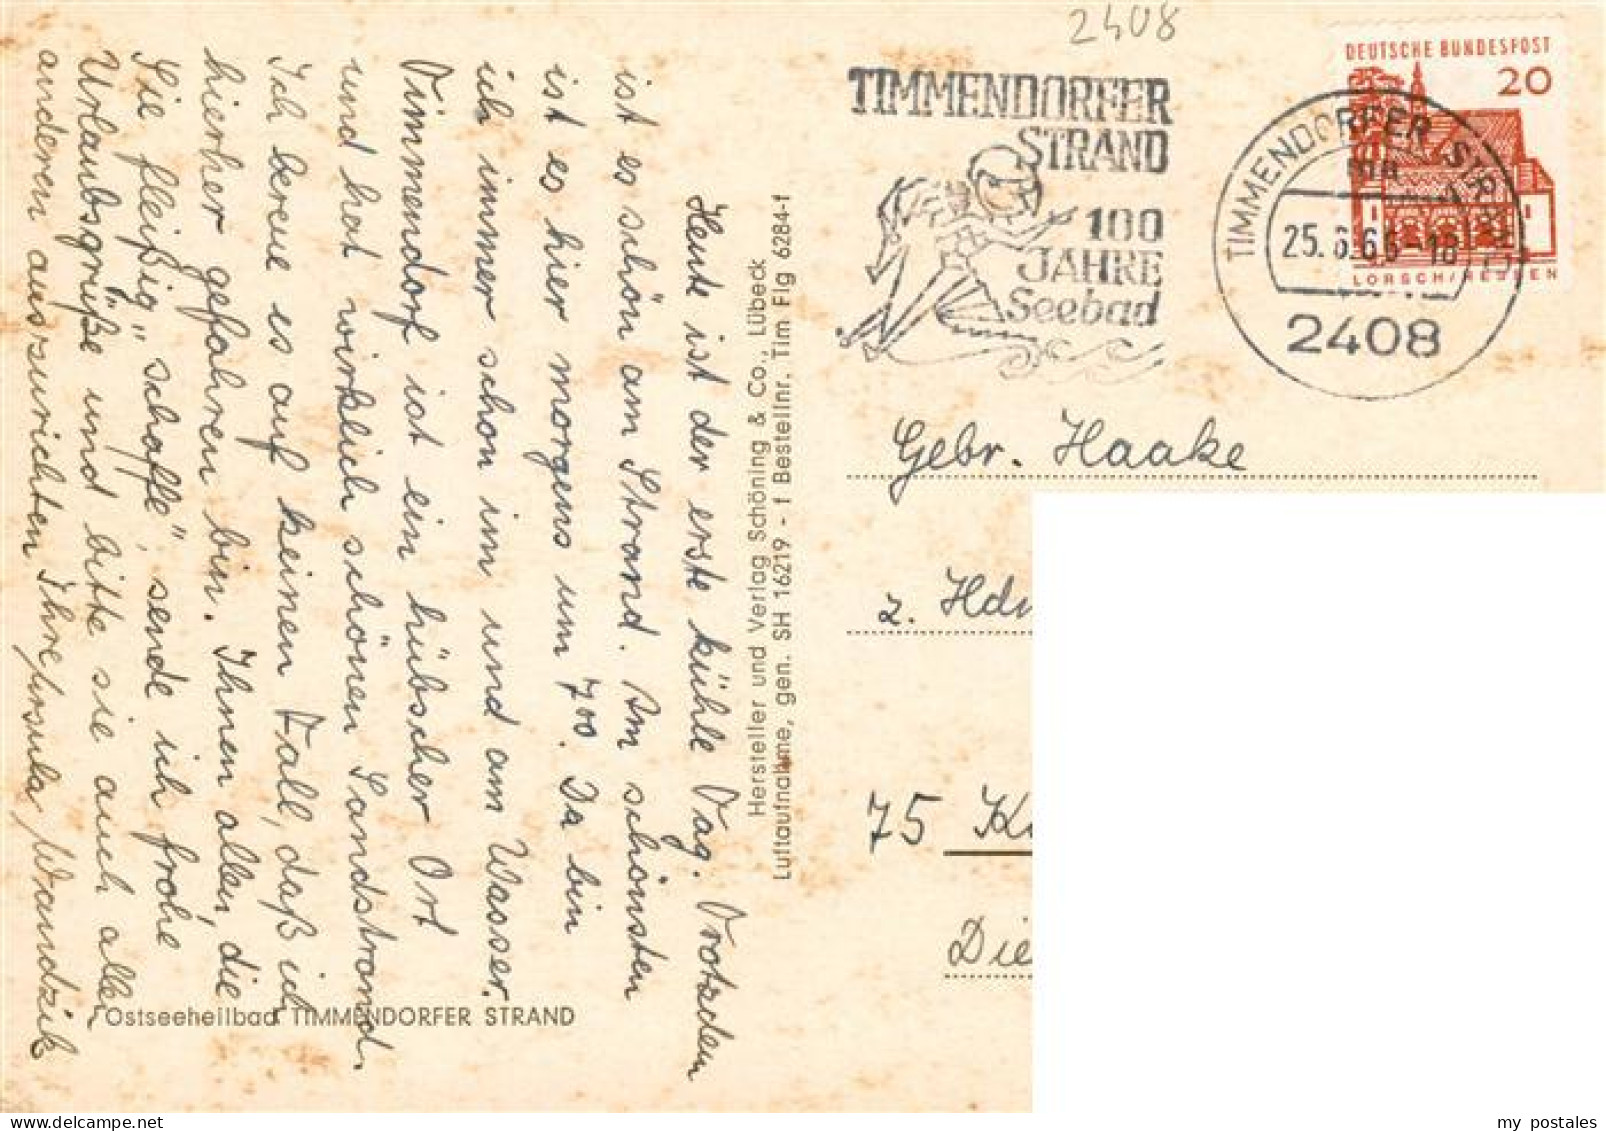 2408
TIMMENDORFER
STRAND
100
JAHRE
Seebad
DEUTSCHE BUNDESPOST
20
LORSCH/HESSEN
TIMMENDORFER STRAND
25.6.66-18
2408
Heute ist der erste kühle Tag. Trotzdem
ist es schön am Strand. Am schönsten
ist es hier morgens um 7oo. Da bin
ich immer schon im und am Wasser.
Timmendorf ist ein hübscher Ort
und hat wirklich schönen Sandstrand.
Ich bereue es auf keinen Fall, daß ich
hierher gefahren bin. Ihnen allen, die
Sie fleißig "schaffe", sende ich frohe
Urlaubsgrüße und bitte sie auch allen
anderen auszurichten Ihre Ursula Wandzik
Hersteller und Verlag Schöning & Co., Lübeck
Luftaufnahme, gen. SH 16219 - 1 Bestellnr. Tim Flg 6284-1
Gebr. Haake
z. Hdn
75 K
Die
Ostseeheilbad TIMMENDORFER STRAND
my postales